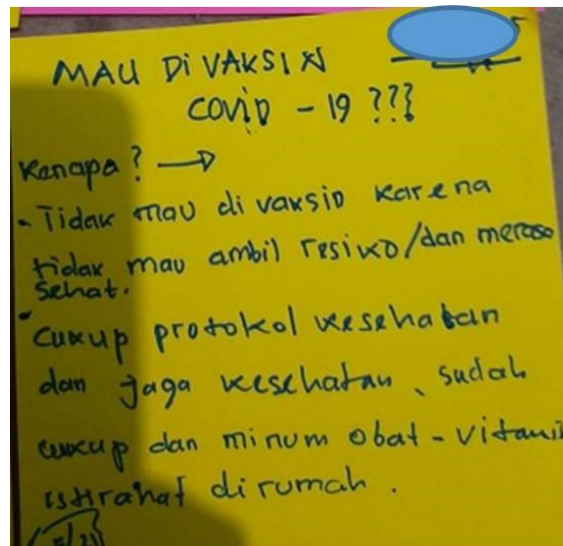 MAU DI VAKSIN
COVID - 19 ???
Kenapa? →
- Tidak mau di vaksin karena
tidak mau ambil resiko/dan merasa
sehat.
• Cukup protokol kesehatan
dan jaga kesehatan, sudah
cukup dan minum obat - vitamin
istirahat di rumah.